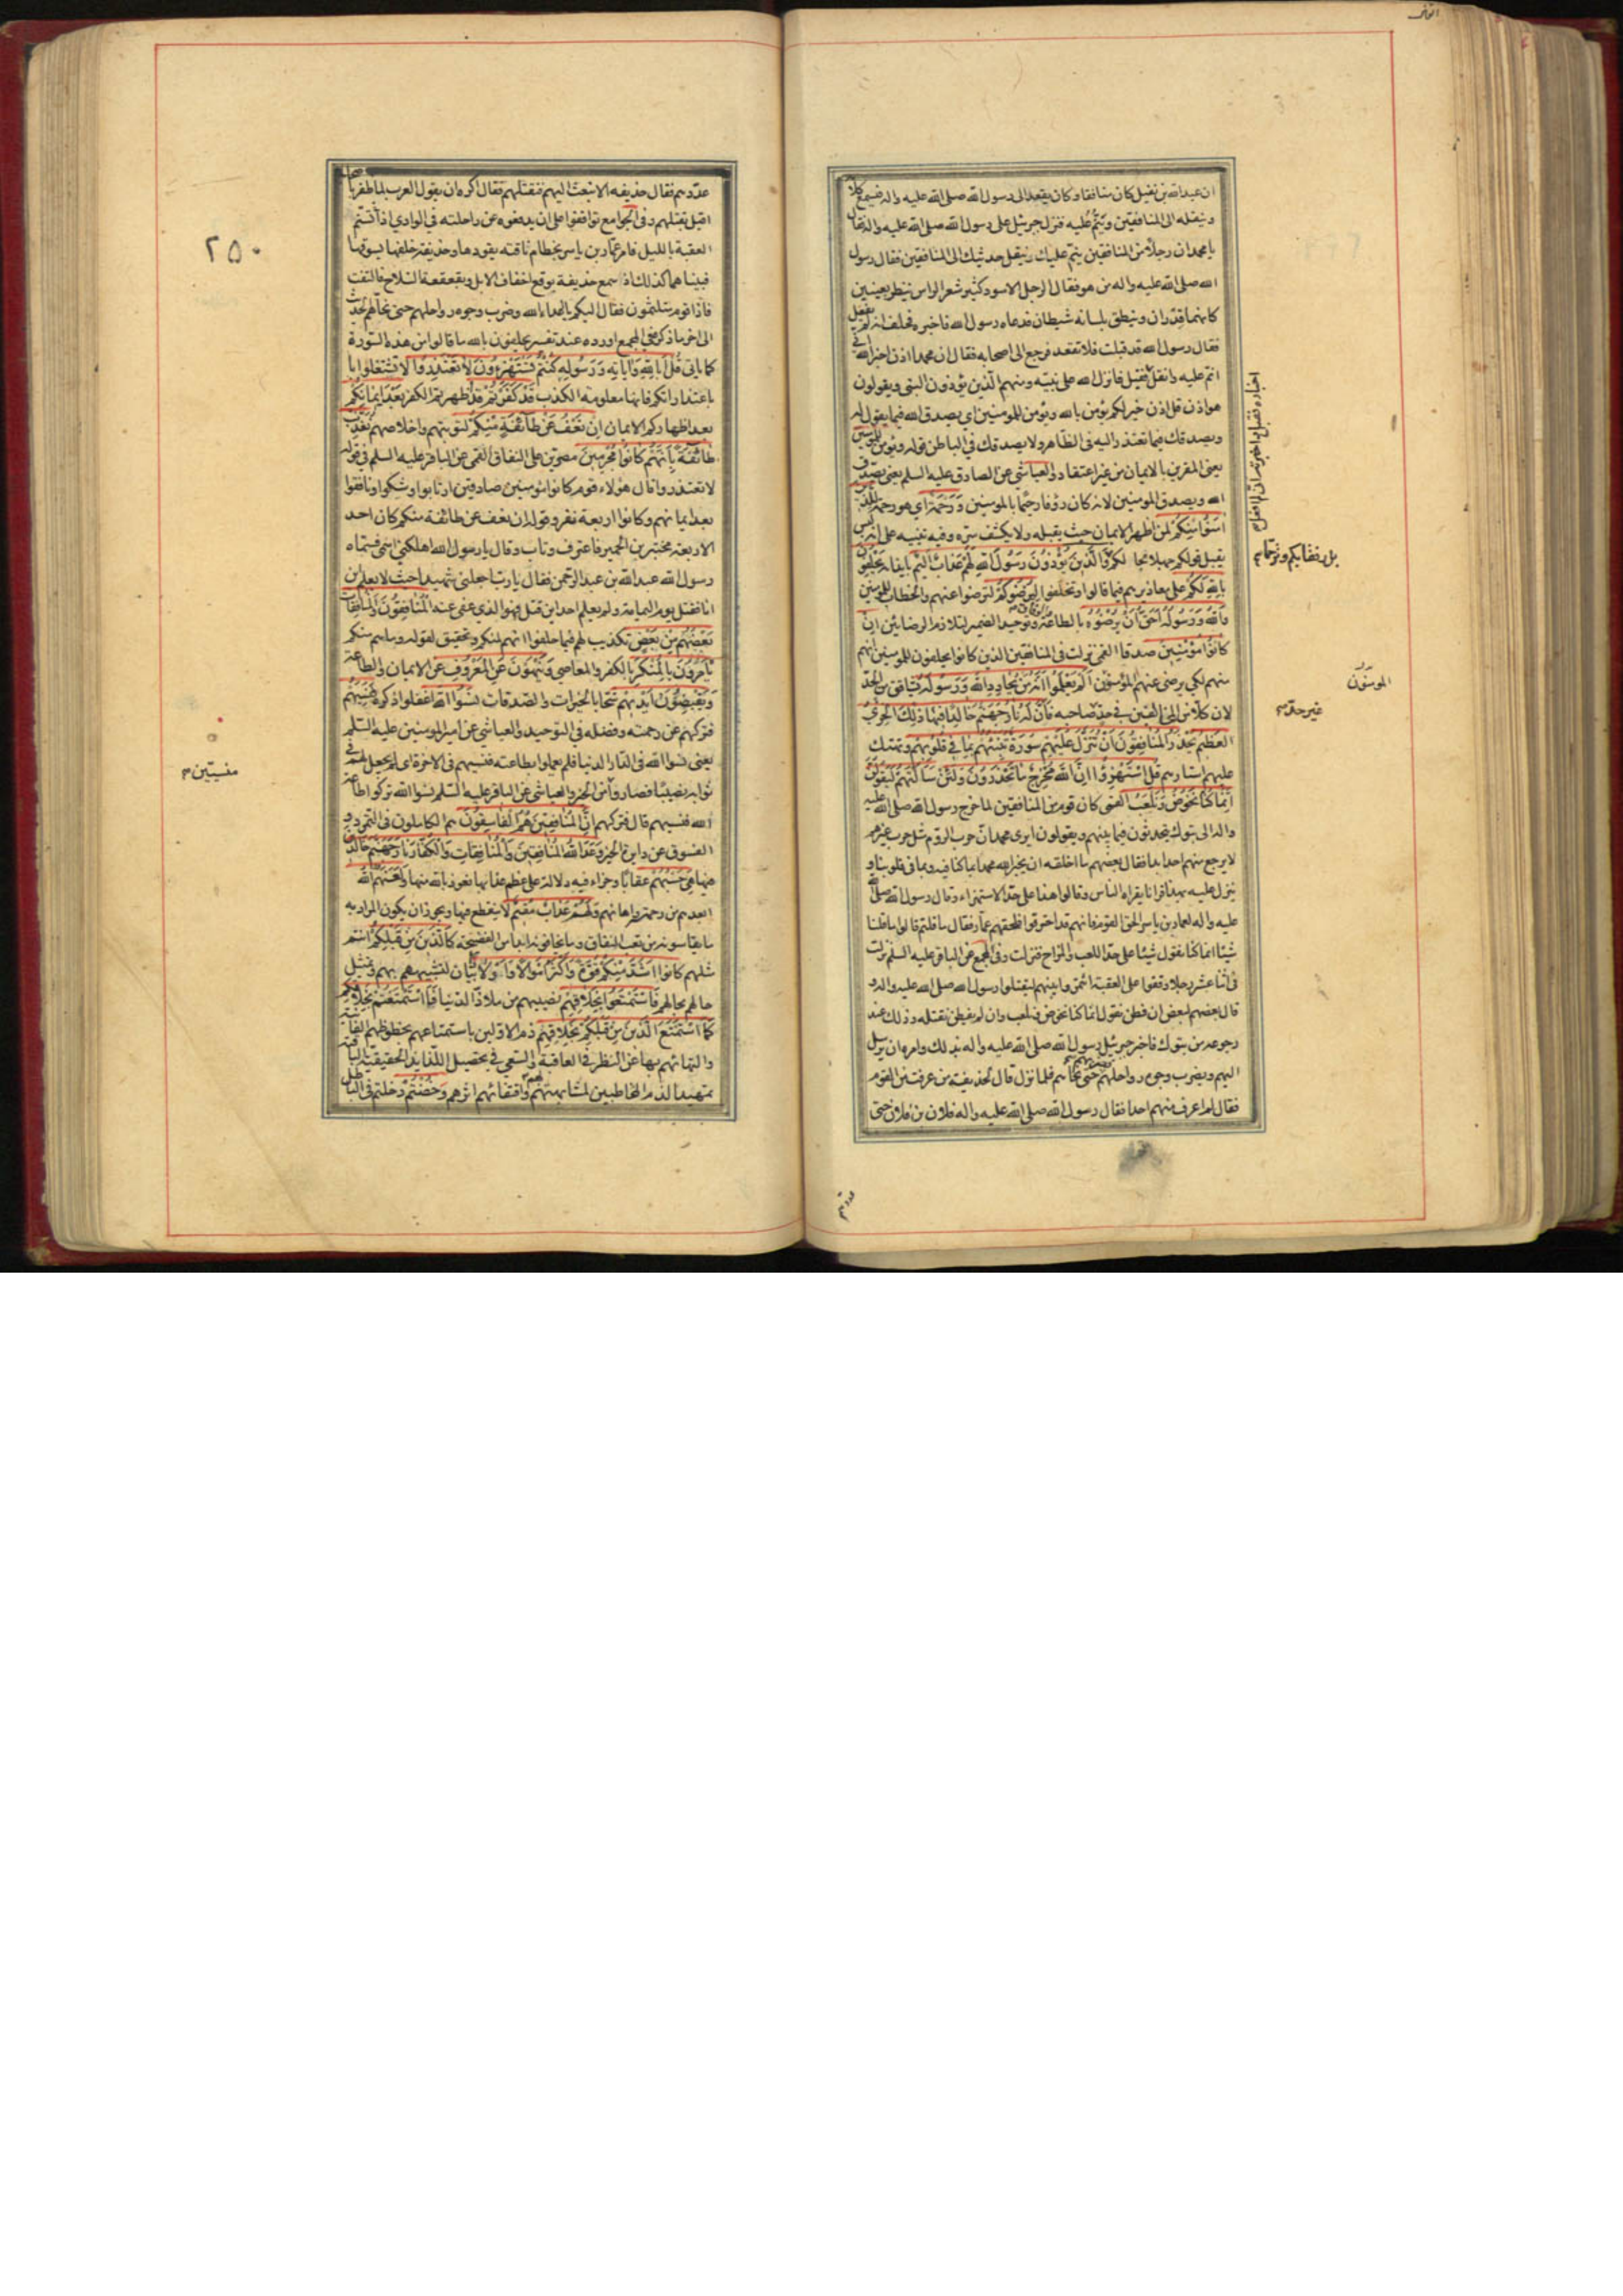 ان عبدالله بن نفيل كان منافقا وكان يقعد الى رسول الله صلى الله عليه واله فيسمع كلامه
وينقله الى المنافقين وينم عليه فنزل جبرئيل على رسول الله صلى الله عليه واله فقال
يا محمد ان رجلا من المنافقين ينم عليك وينقل حديثك الى المنافقين فقال رسول
الله صلى الله عليه واله من هو فقال الرجل الاسود كثير شعر الراس ينظر بعينين
كانهما قدران وينطق بلسانه شيطان فدعاه رسول الله فاخبره فحلف انه لم يفعل
فقال رسول الله قد قبلت فلا تقعد فرجع الى اصحابه فقال ان محمدا اذن اخبره الله اني
انم عليه وانقل فقبل فانزل الله على نبيه ومنهم الذين يؤذون النبي ويقولون
هو اذن قل اذن خير لكم يؤمن بالله ويؤمن للمومنين اي يصدق الله فيما يقول له
ويصدقك فيما تعتذر اليه في الظاهر ولا يصدقك في الباطن قوله ويؤمن للمومنين
يعني المقرين بالايمان من غير اعتقاد والعياشي عن الصادق عليه السلم يعني يصدق
الله ويصدق المومنين لانه كان رؤفا رحيما بالمومنين وَرَحْمَةٌ اي هو رحمة للذين
آمَنُوا مِنْكُمْ لمن اظهر الايمان حيث يقبله ولا يكشف سره وفيه تنبيه على انه ليس
يقبل قولكم جهلا بحالكم وَالَّذِينَ يُؤْذُونَ رَسُولَ اللهِ لَهُمْ عَذَابٌ اَلِيمٌ بايذائه يَحْلِفُونَ
بِاللهِ لَكُمْ على معاذيرهم فيما قالوا او تخلفوا لِيُرْضُوكُمْ لترضوا عنهم والخطاب للمومنين
وَاللهُ وَرَسُولُهُ اَحَقُّ اَنْ يُرْضُوهُ بالطاعة والوفاق وتوحيد الضمير لتلازم الرضائين اِنْ
كَانُوا مُؤْمِنِينَ صدقا القمي نزلت في المنافقين الذين كانوا يحلفون للمومنين انهم
منهم لكي يرضى عنهم المؤمنون اَلَمْ يَعْلَمُوا اَنَّهُ مَنْ يُحَادِدِ اللهَ وَرَسُولَهُ يشاقق من الحد
لان كلا من المخالفين في حد صاحبه فَاَنَّ لَهُ نَارَ جَهَنَّمَ خَالِدًا فِيهَا ذَلِكَ الْخِزْيُ
الْعَظِيمُ يَحْذَرُ الْمُنَافِقُونَ اَنْ تُنَزَّلَ عَلَيْهِمْ سُورَةٌ تُنَبِّئُهُمْ بِمَا فِي قُلُوبِهِمْ وتهتك
عليهم استارهم قُلِ اسْتَهْزِؤُا اِنَّ اللهَ مُخْرِجٌ مَا تَحْذَرُونَ وَلَئِنْ سَاَلْتَهُمْ لَيَقُولُنَّ
اِنَّمَا كُنَّا نَخُوضُ وَنَلْعَبُ القمي كان قوم من المنافقين لما خرج رسول الله صلى الله عليه
واله الى تبوك يتحدثون فيما بينهم ويقولون ايرى محمد ان حرب الروم مثل حرب غيرهم
لا يرجع منهم احد ابدا فقال بعضهم ما اخلقه ان يخبر الله محمدا بما كنا فيه وبما في قلوبنا و
ينزل عليه بهذا قرانا يقراه الناس وقالوا هذا على حد الاستهزاء وقال رسول الله صلى الله
عليه واله لعمار بن ياسر الحق القوم فانهم قد احترقوا فلحقهم عمار فقال ما قلتم قالوا ما قلنا
شيئا انما كنا نقول شيئا على حد اللعب والمزاح فنزلت وفي المجمع عن الباقر عليه السلم نزلت
في اثنا عشر رجلا وقفوا على العقبة ائتمروا بينهم ليقتلوا رسول الله صلى الله عليه واله و
قال بعضهم لبعض ان فطن نقول انما كنا نخوض ونلعب وان لم يفطن نقتله وذلك عند
رجوعه من تبوك فاخبر جبرئيل رسول الله صلى الله عليه واله بذلك وامره ان يرسل
اليهم ويضرب وجوه رواحلهم حتى نحاهم فلما نزل قال لحذيفة من عرفت من القوم
فقال لم اعرف منهم احدا فقال رسول الله صلى الله عليه واله فلان بن فلان حتى
بل رفقا بكم وترحما
المومنون
غير حده
عددهم
عددهم فقال حذيفه الا تبعث اليهم فتقتلهم فقال اكره ان يقول العرب لما ظفر باصحابه
اقبل يقتلهم وفي الجوامع توافقوا على ان يدفعوه عن راحلته في الوادي اذا تسنم
العقبة بالليل فامر عمار بن ياسر بخطام ناقته يقودها وحذيفة خلفها يسوقها
فبينا هما كذلك اذ سمع حذيفة بوقع اخفاف الابل وبقعقعة السلاح فالتفت
فاذا قوم متلثمون فقال اليكم يا اعداء الله وضرب وجوه رواحلهم حتى نحاهم الحديث
الى اخر ما ذكر في المجمع اورده عند تفسير يحلفون بالله ما قالوا من هذه السورة
كما ياتي قُلْ اَبِاللهِ وَآيَاتِهِ وَرَسُولِهِ كُنْتُمْ تَسْتَهْزِءُونَ لَا تَعْتَذِرُوا لا تشتغلوا
باعتذاراتكم فانها معلومة الكذب قَدْ كَفَرْتُمْ قد اظهرتم الكفر بَعْدَ اِيمَانِكُمْ
بعد اظهاركم الايمان اِنْ نَعْفُ عَنْ طَائِفَةٍ مِنْكُمْ لتوبتهم واخلاصهم نُعَذِّبْ
طَائِفَةً بِاَنَّهُمْ كَانُوا مُجْرِمِينَ مصرين على النفاق القمي عن الباقر عليه السلم في قوله
لا تعتذروا قال هؤلاء قوم كانوا مومنين صادقين ارتابوا وشكوا ونافقوا
بعد ايمانهم وكانوا اربعة نفر وقوله ان نعف عن طائفة منكم كان احد
الاربعة مختبر بن الحمير فاعترف وتاب وقال يا رسول الله اهلكني اسمي فسماه
رسول الله عبد الله بن عبد الرحمن فقال يا رب اجعلني شهيدا حيث لا يعلم اين
انا فقتل يوم اليمامة ولم يعلم احد اين قتل فهو الذي عفى عنه الْمُنَافِقُونَ وَالْمُنَافِقَاتُ
بَعْضُهُمْ مِنْ بَعْضٍ تكذيب لهم فيما حلفوا انهم لمنكم وتحقيق لقوله وما هم منكم
يَاْمُرُونَ بِالْمُنْكَرِ بالكفر والمعاصي وَيَنْهَوْنَ عَنِ الْمَعْرُوفِ عن الايمان والطاعة
وَيَقْبِضُونَ اَيْدِيَهُمْ شحا بالخيرات والصدقات نَسُوا اللهَ اغفلوا ذكره فَنَسِيَهُمْ
فتركهم عن رحمته وفضله في التوحيد والعياشي عن امير المومنين عليه السلم
يعني نسوا الله في الدار الدنيا فلم يعملوا بطاعته فنسيهم في الاخرة اي لم يجعل لهم في
ثوابه نصيبا فصاروا من الخير والعياشي عن الباقر عليه السلم نسوا الله تركوا طاعة
الله فنسيهم قال فتركهم اِنَّ الْمُنَافِقِينَ هُمُ الْفَاسِقُونَ هم الكاملون في التمرد و
الفسوق عن دايرة الخير وَعَدَ اللهُ الْمُنَافِقِينَ وَالْمُنَافِقَاتِ وَالْكُفَّارَ نَارَ جَهَنَّمَ خَالِدِينَ
فِيهَا هِيَ حَسْبُهُمْ عقابا وجزاء فيه دلالة على عظم عذابها نعوذ بالله منها وَلَعَنَهُمُ اللهُ
ابعدهم من رحمته واهانهم وَلَهُمْ عَذَابٌ مُقِيمٌ لا ينقطع فيها ويجوز ان يكون المراد به
ما يقاسونه من تعب النفاق وما يخافونه ابدا من الفضيحة كَالَّذِينَ مِنْ قَبْلِكُمْ انتم
مثلهم كَانُوا اَشَدَّ مِنْكُمْ قُوَّةً وَاَكْثَرَ اَمْوَالًا وَاَوْلَادًا بيان لتشبيههم بهم وتمثيل
حالهم بحالهم فَاسْتَمْتَعُوا بِخَلَاقِهِمْ نصيبهم من ملاذ الدنيا فَاسْتَمْتَعْتُمْ بِخَلَاقِكُمْ
كَمَا اسْتَمْتَعَ الَّذِينَ مِنْ قَبْلِكُمْ بِخَلَاقِهِمْ ذم الاولين باستمتاعهم بحظوظهم الفانية
والتهائهم بها عن النظر في العاقبة والسعي في تحصيل اللذايذ الحقيقية الباقية
تمهيدا لذم المخاطبين لمشابهتهم واقتفائهم اثرهم وَخُضْتُمْ دخلتم في الباطل
٢٥٠
منسيين